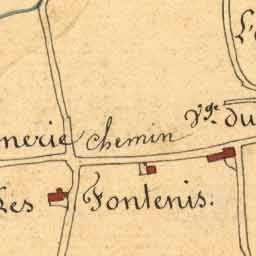 L'
nerie Chemin Vge. du
Les Fontenis.